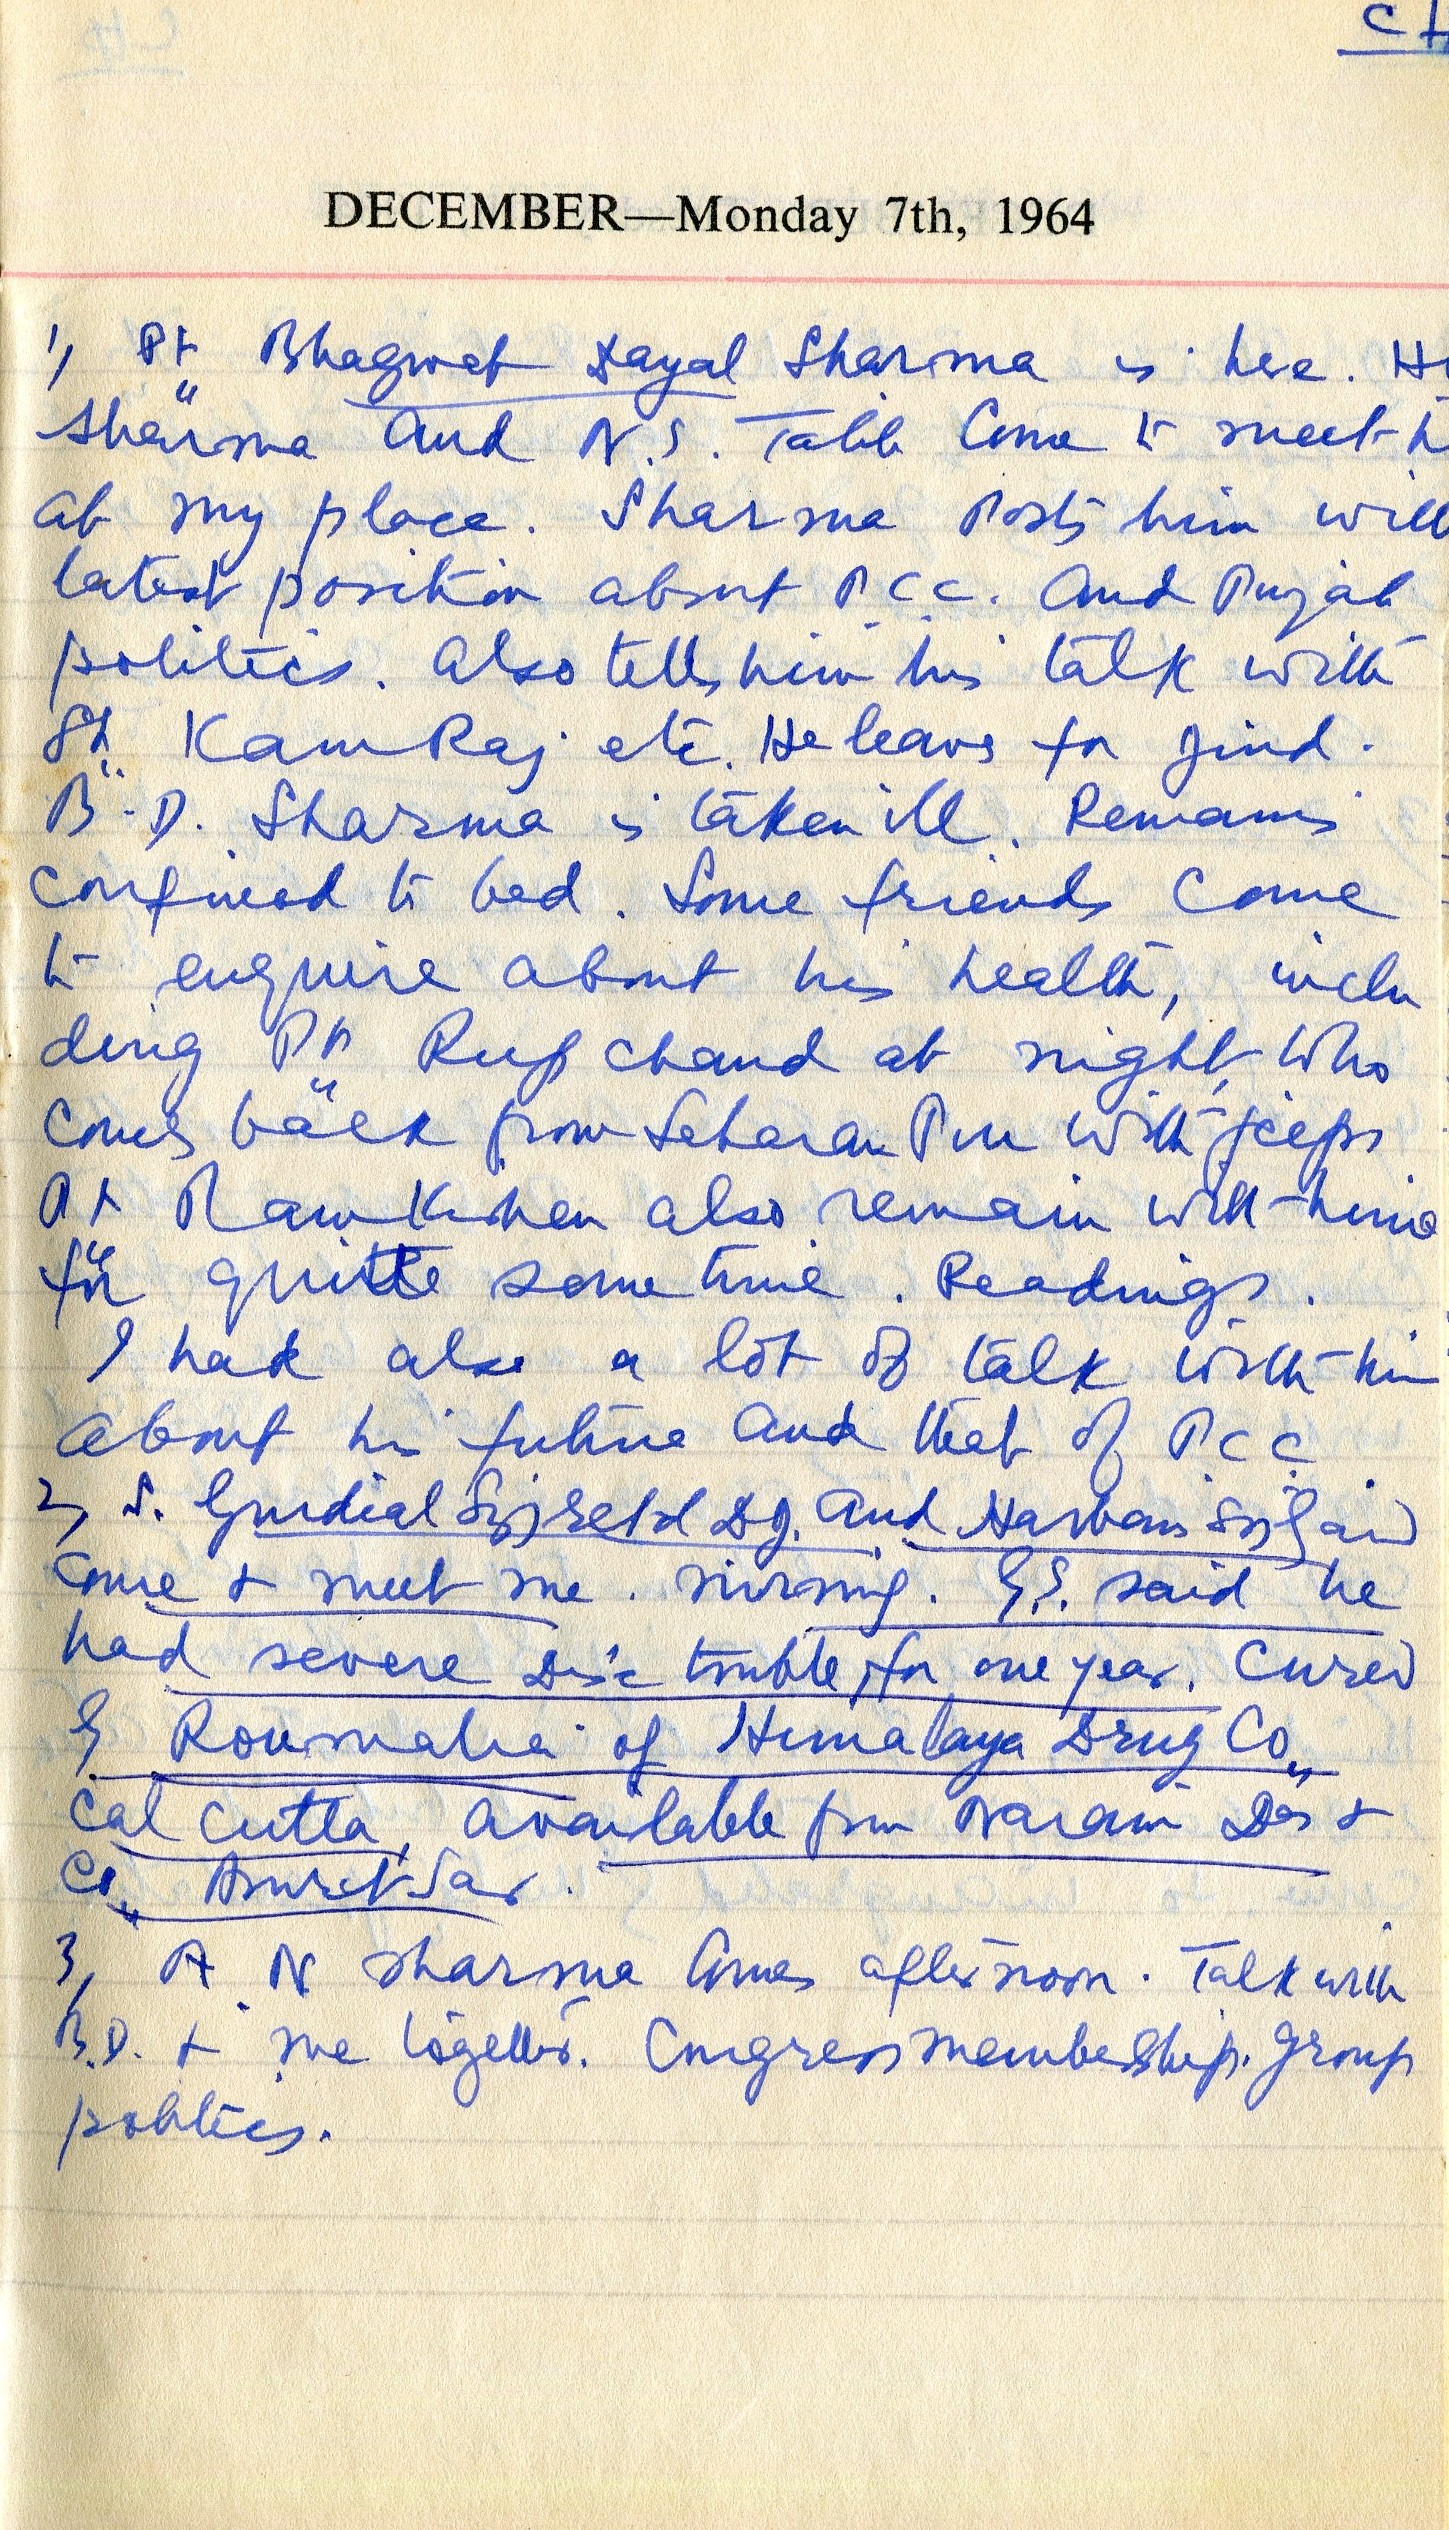 CH
DECEMBER—Monday 7th, 1964
1, Pt Bhagwat Dayal Sharma is here. H
Sharma and N.S. Talib Come to meet
at my place. Sharma Posts him with
latest position about P.C.C. and Punjab
politics. Also tells him his talk with
Sh. KamRaj etc. He leaves for Jind.
B.D. Sharma is taken ill. Remains
Confined to bed. Some friends Come
to enquire about his health, inclu
ding Pt Rup chand at night, who
comes back from Saharan Pur with jeeps
Pt RamKishen also remain with him
for quitte some time. Readings.
I had also a lot of talk with him
about his future and that of P.C.C.
2, S. Gurdial Sing Retd DJ. and Harbans Sing
come & meet me. G.S. said he
had severe Disc trouble for one year. Cured
of Himalaya Drug Co,
Calcutta, available from Narain Das &
Co, Amrit Sar.
3, A N Sharma Comes afternoon. Talk with
B.D. & me together. Congress membership. Group
politics.